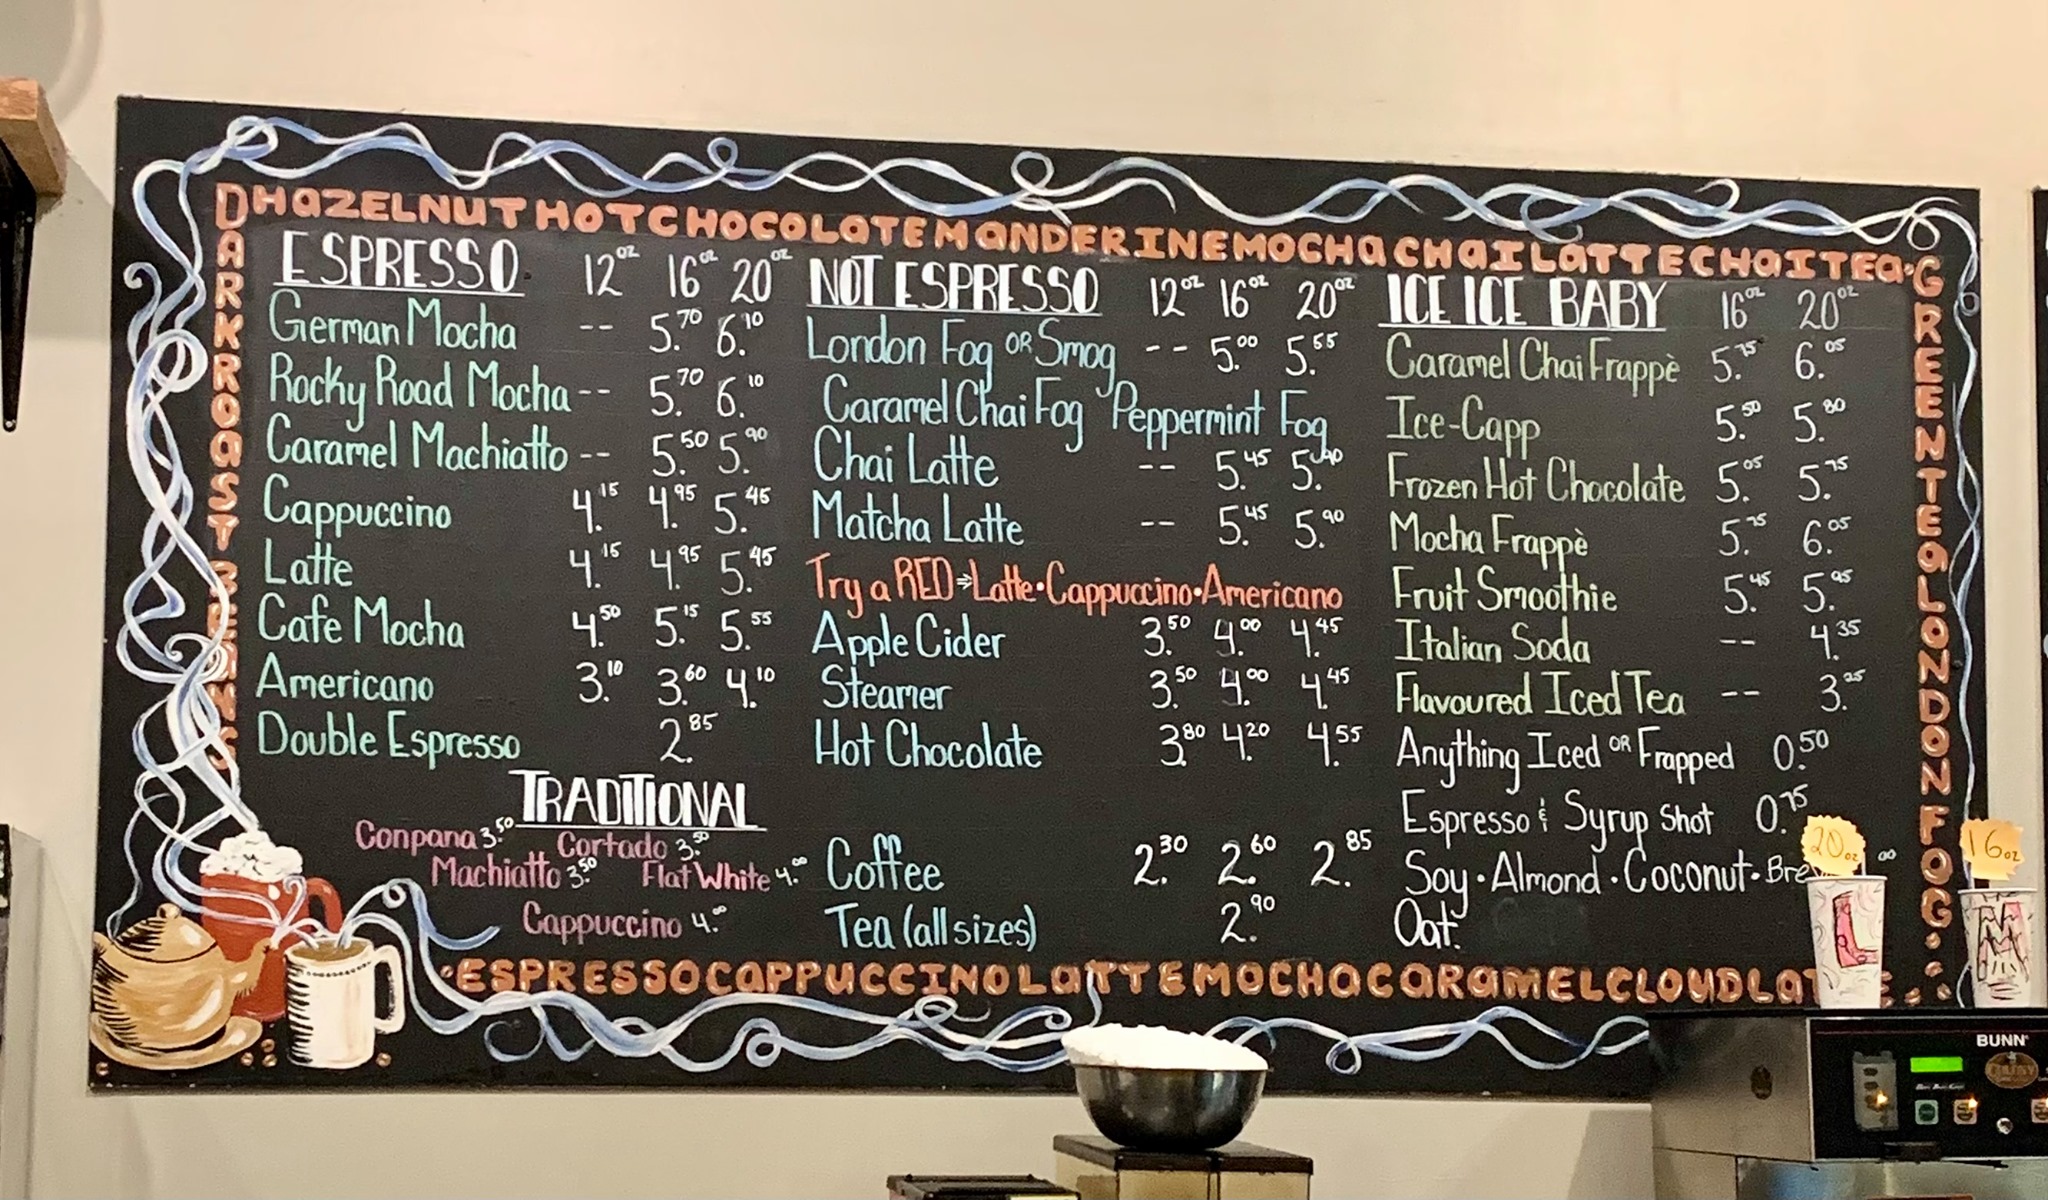 DHAZELNUTHOTCHOCOLATEMANDERINEMOCHACHAILATTECHAITEA.
DARKROASTBEANS
GREENTEALONDONFOG.
ESPRESSO 12oz 16oz 20oz
German Mocha -- 5.70 6.10
Rocky Road Mocha -- 5.70 6.10
Caramel Machiatto -- 5.50 5.90
Cappuccino 4.15 4.95 5.45
Latte 4.15 4.95 5.45
Cafe Mocha 4.50 5.15 5.55
Americano 3.10 3.60 4.10
Double Espresso 2.85
TRADITIONAL
Conpana 3.50 Cortado 3.50
Machiatto 3.50 Flat White 4.00
Cappuccino 4.00
NOT ESPRESSO 12oz 16oz 20oz
London Fog OR Smog -- 5.00 5.55
Caramel Chai Fog Peppermint Fog
Chai Latte -- 5.45 5.90
Matcha Latte -- 5.45 5.90
Try a RED ⇒ Latte • Cappuccino • Americano
Apple Cider 3.50 4.00 4.45
Steamer 3.50 4.00 4.45
Hot Chocolate 3.80 4.20 4.55
Coffee 2.30 2.60 2.85
Tea (all sizes) 2.90
ICE ICE BABY 16oz 20oz
Caramel Chai Frappè 5.75 6.05
Ice-Capp 5.50 5.80
Frozen Hot Chocolate 5.05 5.75
Mocha Frappè 5.75 6.05
Fruit Smoothie 5.45 5.95
Italian Soda -- 4.35
Flavoured Iced Tea -- 3.25
Anything Iced OR Frapped 0.50
Espresso & Syrup Shot 0.75
Soy • Almond • Coconut • Bre 00
Oat.
20oz
16oz
L
M
•ESPRESSOCAPPUCCINOLATTEMOCHACARAMELCLOUDLAT E
BUNN